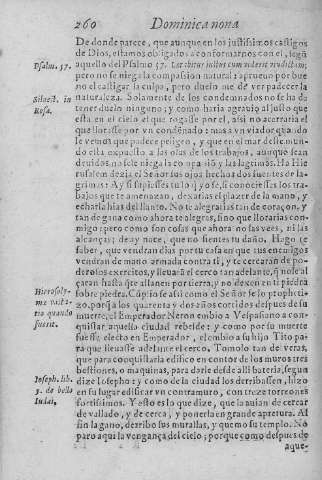 260 Dominica nona
De donde parece, que aunque en los justissimos castigos
de Dios, estamos obligados a conformarnos con el, segũ
Psalm. 57.
aquello del Psalmo 57. Lætabitur iustus cum viderit vindictam;
pero no se niega la compassion natural: aprueuo por bue
no el castigar la culpa, pero duelo me de ver padecer la
Siluest. in
Rosa.
naturaleza. Solamente de los condemnados no se ha de
tener duelo ninguno; y como haria agrauio al justo que
està en el cielo el que rogasse por el, assi no acertaria el
que llorasse por vn condẽnado: mas a vn viador quando
le vemos que padece peligro, y que en el mar deste mun-
do està expuesto a las olas de los trabajos, aunque sean
deuidos no se le niega la compassiõ y las lagrimas. Ha Hie
rusalem dezia el Señor sus ojos hechos dos fuentes de la-
grimas: A y si supiesses tu lo q̃ yo se, si conociesses los tra-
bajos que te amenazan, dexarias el plazer de la mano, y
echarias hias del llanto. No te alegrarias tan de coraçon, y
tan de gana como ahora te alegras, sino que llorarias con-
migo: pero como son cosas que ahora no las vees, ni las
alcanças; de ay nace, que no sientes tu daño. Hago te
saber, que vendran dias por tu casa en que tus enemigos
vendran de mano armada contra ti, y te cercaràn de po-
derosos exercitos, y lleuarã el cerco tan adelante, q̃ no se al
çaràn hasta q̃ te allanen por tierra, y no dexen en ti piedra
sobre piedra. Cũpliose assi como el Señor se lo prophoti-
Hierosoly-
mæ
quando
fuerit.
zo, porq̃ a los quarenta y dos años corridos despues de su
muerte, el Emperador Neron embio a Vespasiano a con-
quistar aquella ciudad rebelde: y como por su muerte
fuesse electo en Emperador, el embio a su hijo Tito pa-
ra que lleuasse adelante el cerco. Tomolo tan de veras,
que para conquistarla edificò en contor de los muros tres
bestiones, o maquinas, para darle desde alli bateria, segun
Ioseph. lib.
5. de bello
Iudai.
dize Iosepho: y como de la ciudad los derribassen, hizo
en su lugar edificar vn contramuro, con treze torreones
fortissimos. Y esto es lo que dize, que la auian de cercar
de vallado, y de cerca, y ponerla en grande apretura. Al
fin la gano, derribo sus murallas, y quemo su templo. No
paro aqui la vengança del cielo; porque como despues de
aque-